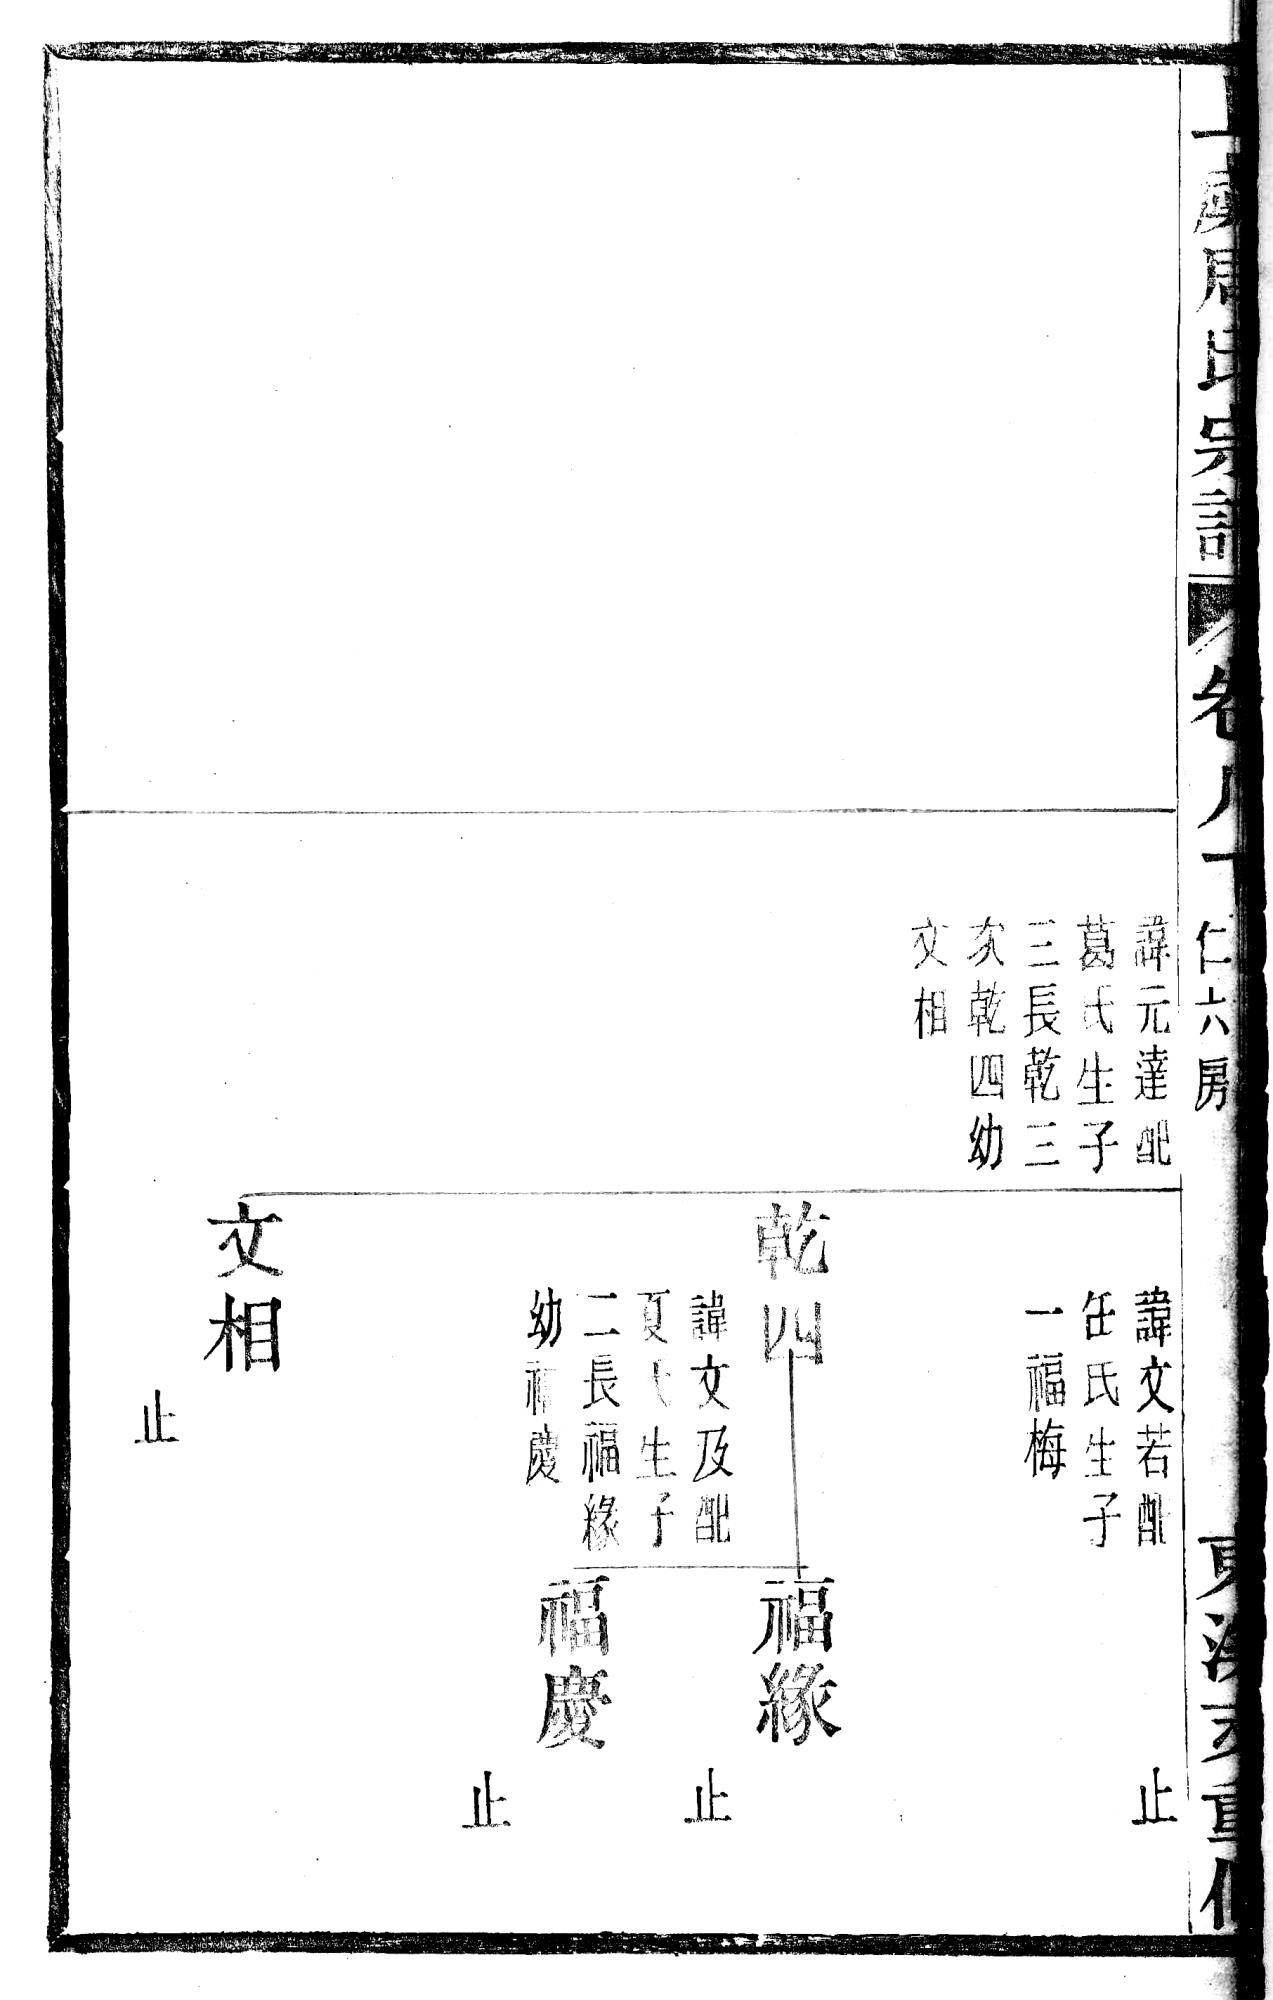 周氏宗譜
卷八十
仁六房
重修
諱元達配
葛氏生子
三長乾三
次乾四幼
文相
諱文若配
任氏生子
一福梅
止
乾四
諱文及配
夏氏生子
二長福緣
幼福慶
福緣
止
福慶
止
文相
止